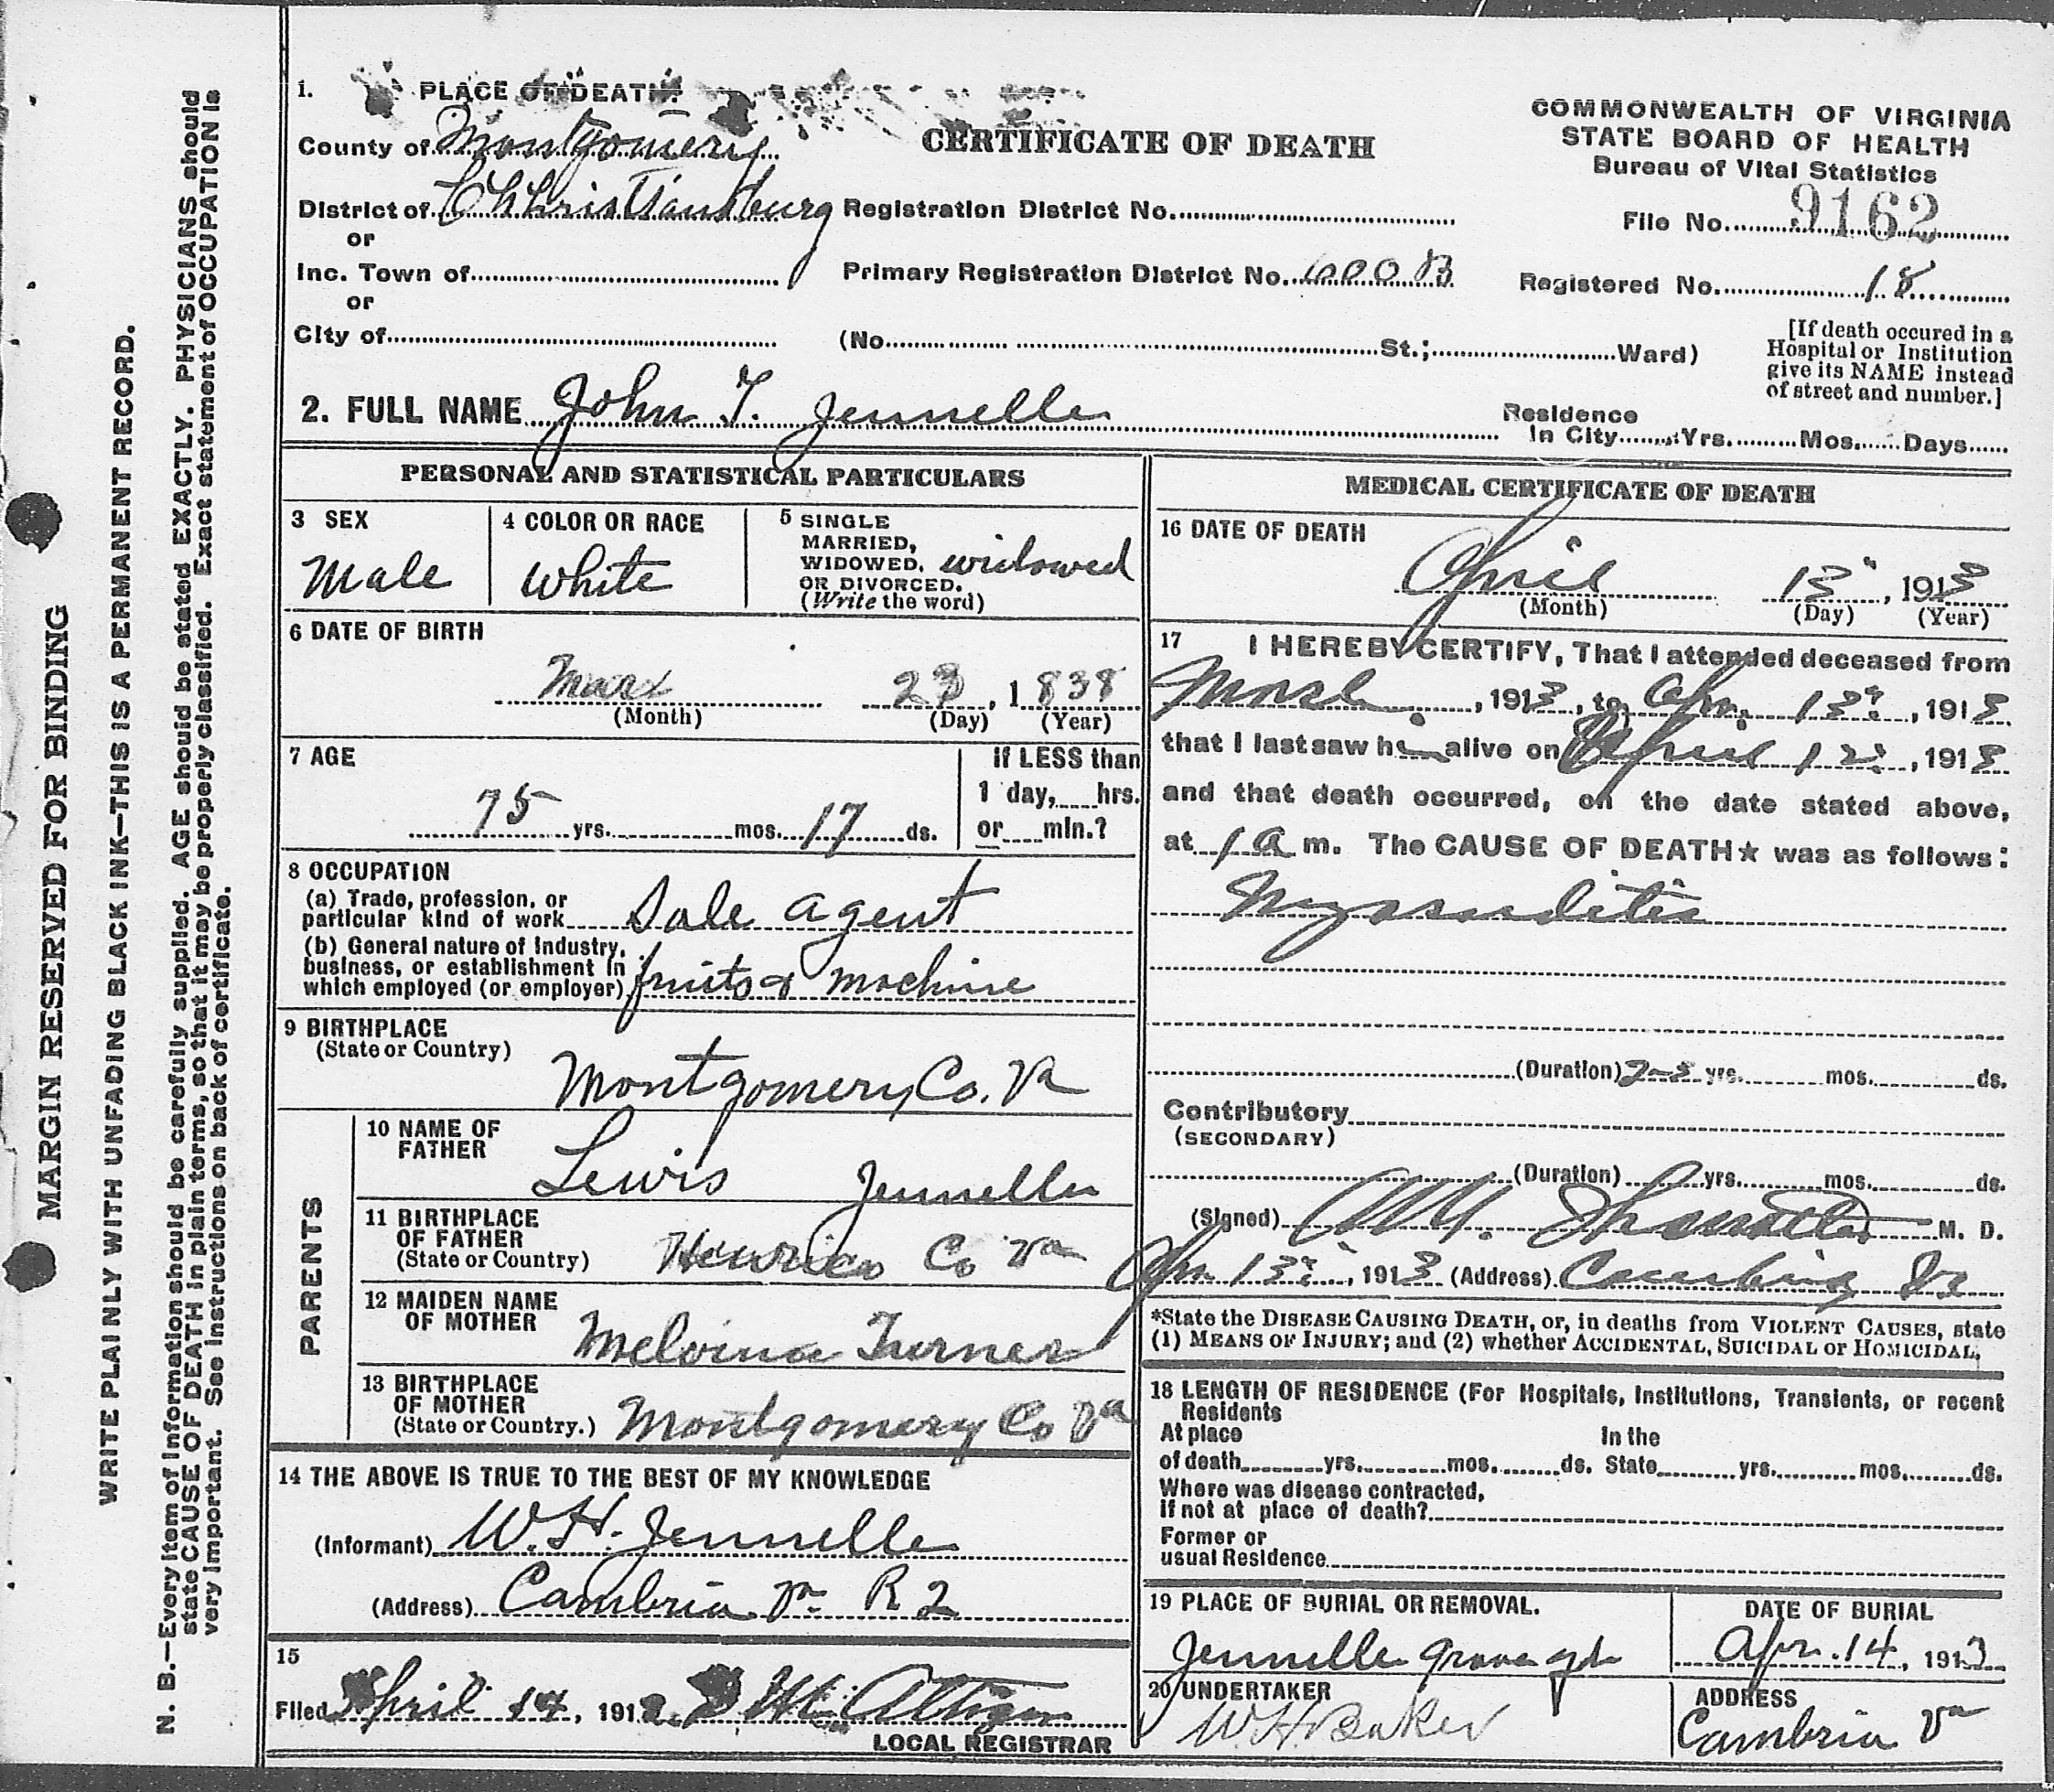 MARGIN RESERVED FOR BINDING
WRITE PLAINLY WITH UNFADING BLACK INK—THIS IS A PERMANENT RECORD.
N. B.—Every item of Information should be carefully supplied. AGE should be stated EXACTLY. PHYSICIANS should
state CAUSE OF DEATH in plain terms, so that it may be properly classified. Exact statement of OCCUPATION is
very important. See instructions on back of certificate.
1. PLACE OF DEATH
County of Montgomery
CERTIFICATE OF DEATH
COMMONWEALTH OF VIRGINIA
STATE BOARD OF HEALTH
Bureau of Vital Statistics
District of Chhristiansburg Registration District No.
File No. 9162
or
Inc. Town of
Primary Registration District No. 600B
Registered No. 18
or
City of (No. St.; Ward)
[If death occured in a
Hospital or Institution
give its NAME instead
of street and number.]
2. FULL NAME John T. Jennelle
Residence
In City Yrs. Mos. Days
PERSONAL AND STATISTICAL PARTICULARS
3 SEX
Male
4 COLOR OR RACE
White
5 SINGLE
MARRIED,
WIDOWED, widowed
OR DIVORCED.
(Write the word)
6 DATE OF BIRTH
Mar 23, 1838
(Month) (Day) (Year)
7 AGE
75 yrs. mos. 17 ds.
If LESS than
1 day, hrs.
or min.?
8 OCCUPATION
(a) Trade, profession, or
particular kind of work Sale agent
(b) General nature of Industry,
business, or establishment in
which employed (or employer) fruits & machine
9 BIRTHPLACE
(State or Country)
Montgomery Co. Va
PARENTS
10 NAME OF
FATHER
Lewis Jennelle
11 BIRTHPLACE
OF FATHER
(State or Country) Henrico Co Va
12 MAIDEN NAME
OF MOTHER
Melvina Turner
13 BIRTHPLACE
OF MOTHER
(State or Country.) Montgomery Co Va
14 THE ABOVE IS TRUE TO THE BEST OF MY KNOWLEDGE
(Informant) W. H. Jennelle
(Address) Cambria Va R 2
15
Filed April 14, 191
LOCAL REGISTRAR
MEDICAL CERTIFICATE OF DEATH
16 DATE OF DEATH
April 13, 1913
(Month) (Day) (Year)
17 I HEREBY CERTIFY, That I attended deceased from
March, 1913, to Apr. 13, 1913
that I last saw him alive on April 12, 1913
and that death occurred, on the date stated above,
at 1 a m. The CAUSE OF DEATH★ was as follows:
(Duration) 2-3 yrs. mos. ds.
Contributory
(SECONDARY)
(Duration) yrs. mos. ds.
(Signed) M. D.
Apr 13, 1913 (Address) Cambria Va
*State the DISEASE CAUSING DEATH, or, in deaths from VIOLENT CAUSES, state
(1) MEANS OF INJURY; and (2) whether ACCIDENTAL, SUICIDAL or HOMICIDAL.
18 LENGTH OF RESIDENCE (For Hospitals, Institutions, Transients, or recent
Residents
At place In the
of death yrs. mos. ds. State yrs. mos. ds.
Where was disease contracted,
If not at place of death?
Former or
usual Residence
19 PLACE OF BURIAL OR REMOVAL.
Jennelle grave yd
DATE OF BURIAL
Apr. 14, 1913
20 UNDERTAKER
W. H. Baker
ADDRESS
Cambria Va